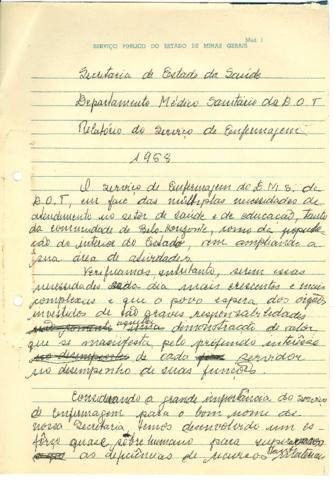 Mod. 1
SERVIÇO PÚBLICO DO ESTADO DE MINAS GERAIS
Secretaria de Estado da Saúde
Departamento Médico Sanitário da D.O.T
Relatório do Serviço de Enfermagem
1968
O Serviço de Enfermagem do D.M.S. da
D.O.T, em face das múltiplas necessidades de
atendimento no setor de saúde e de educação, tanto
da comunidade de Belo Horizonte, como da popula-
ção do interior do Estado, vem ampliando a
sua área de atividades.
Verificamos, entretanto, serem essas
necessidades cada dia mais crescentes e mais
complexas e que o povo espera dos órgãos
investidos de tão graves responsabilidades
demonstração de valor,
que se manifesta pelo profundo interesse
de cada servidor
no desempenho de suas funções.
Considerando a grande importância do serviço
de Enfermagem para o bom nome de
nossa Secretaria, temos desenvolvido um es-
fôrço quase sobrehumano para superarmos
as deficiências de recursos